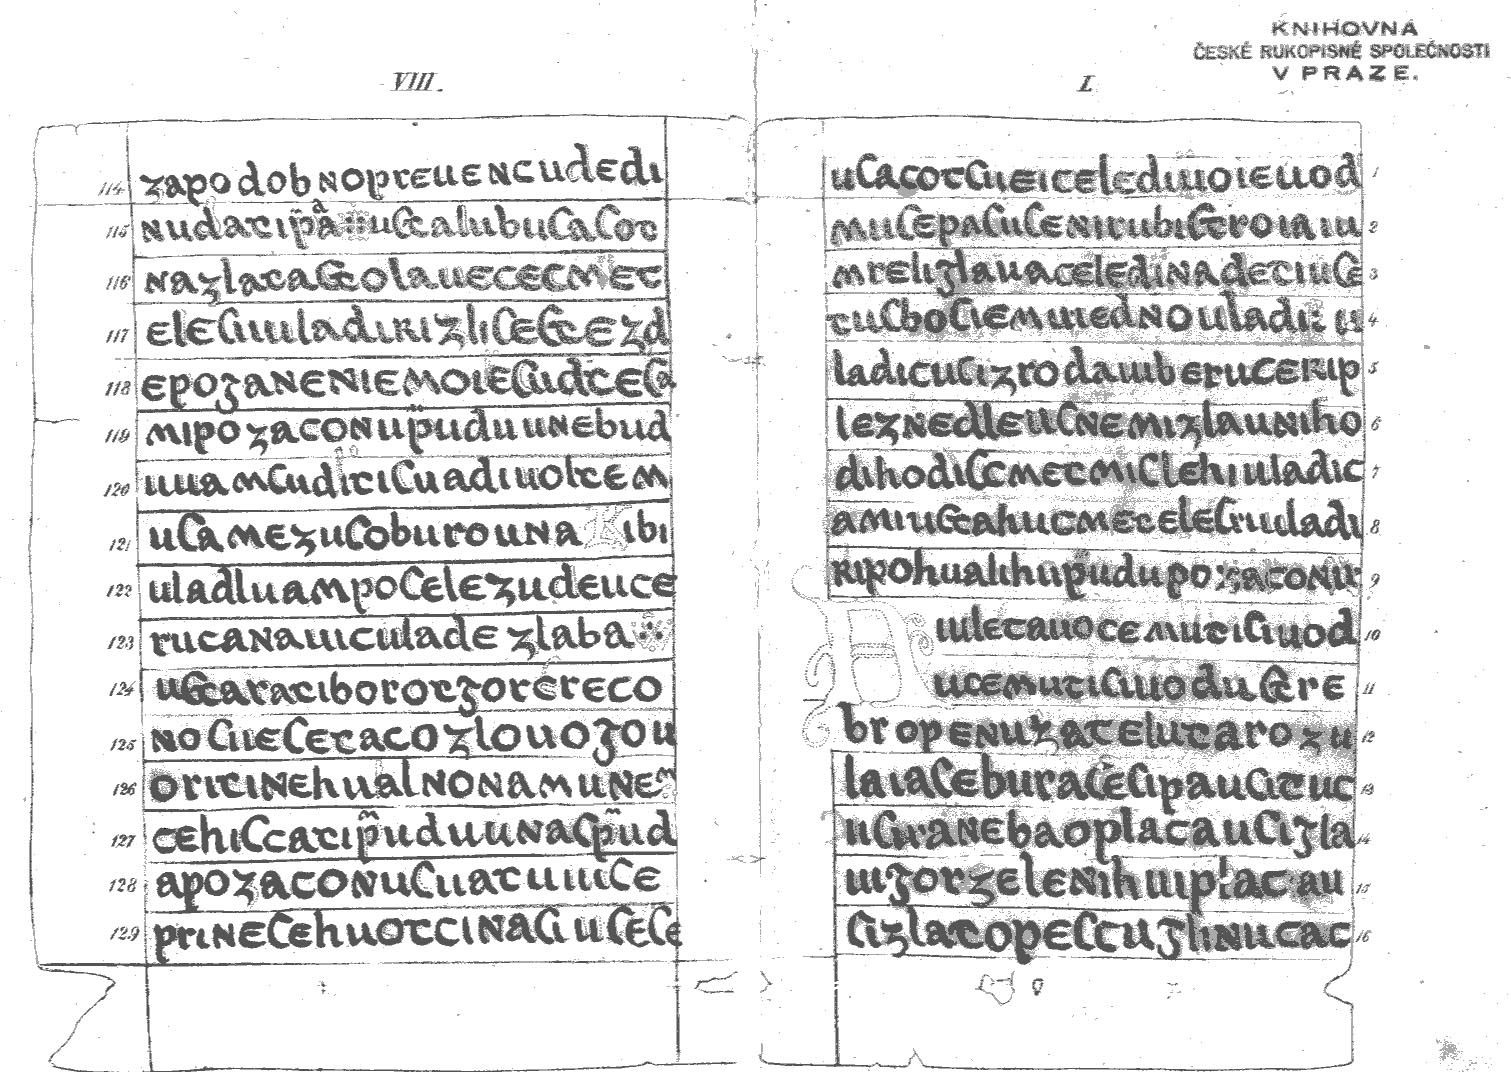 KNIHOVNA
ČESKÉ RUKOPISNÉ SPOLEČNOSTI
V PRAZE.
VIII.
114 zapodobnopreuencudedi
115 nudatip̃a uſcalubuſaſot
116 nazlataſtolauececmet
117 eleſiuuladikizliſeſtezd
118 epoganeniemoieſudteſa
119 mipozaconup̃uduunebud
120 uuamſuditiſuadiuoltem
121 uſamezuſoburouna Kibi
122 uladluampoſelezudeuce
123 rucanauiculadezlaba
124 uſtaratiborotgorcreco
125 noſueſetacozlouogou
126 orititinehualnonamunem
127 cehiſcatip̃uduunaſp̃ud
128 apozaconuſuatuuiſe
129 prineſehuotcinaſiuſeſe
I.
uſacotſueicelediuoieuod 1
muſepaſuſenitubiſtroiaiu 2
mreliglauaceledinadetiuſe 3
tuſboſiemuiednouladi: u 4
ladicuſizrodauiberuceкip 5
lezнedleuſnemizlauniho 6
dihodiſcmecmiſlehiuladic 7
amiuſtahucmeceleſiuuladi 8
kipohualihup̃udupozaconu 9
D uiletauocemutiſiuod 10
ucemutiſiuoduſtre 11
bropenuzateluтarozu 12
laiaſeburaſeſipauſituc 13
uſuranebaoplacauſigla 14
uigorzelenihuiplacau 15
ſizlatopeſctuglinucac 16